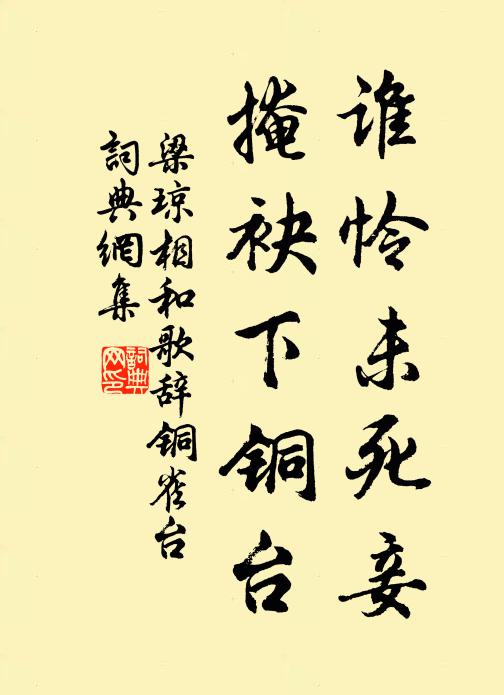 谁怜未死妾
掩袂下铜台
梁琼相和歌辞铜雀台
词典網集
詞典网印